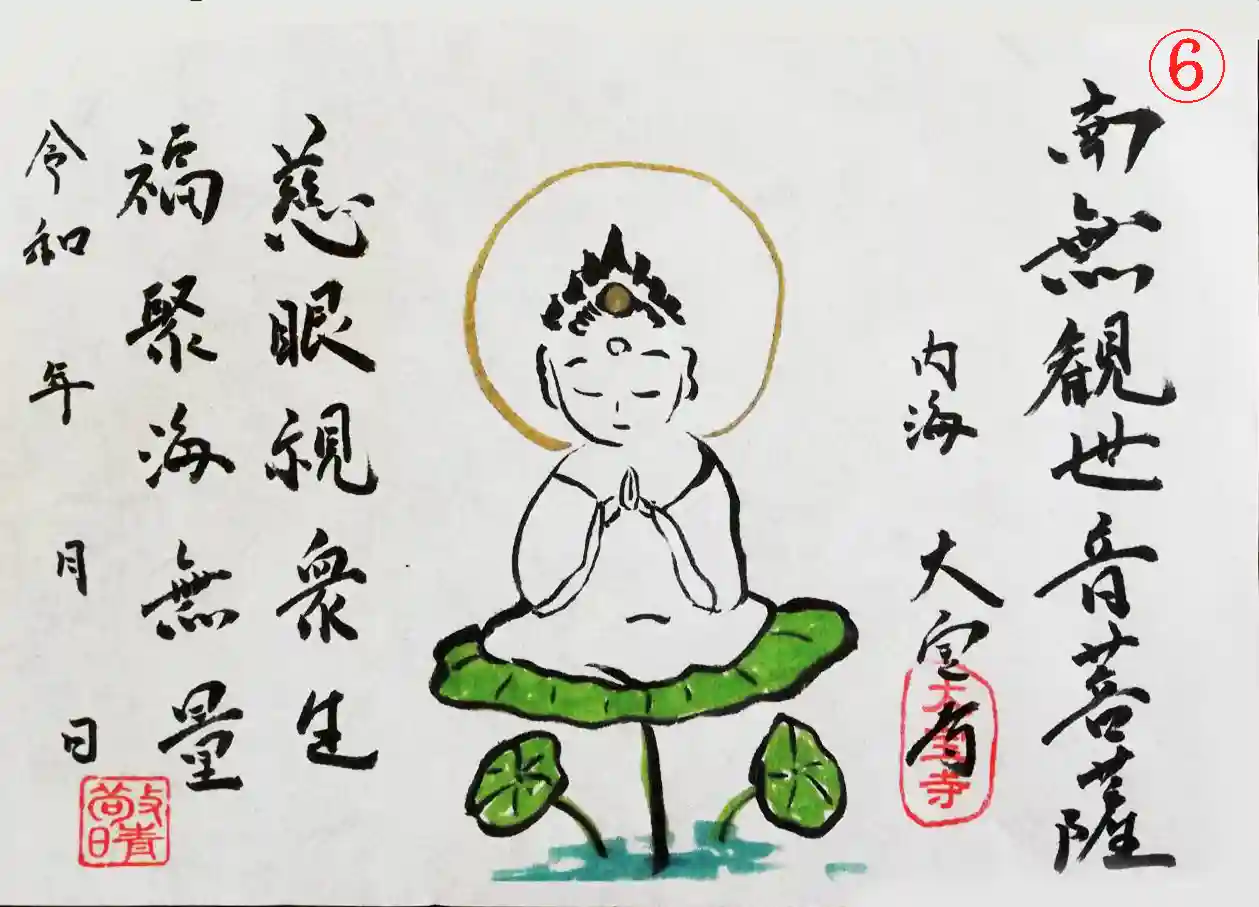 ⑥
南無観世音菩薩
内海 大宝寺
大宝寺
慈眼視衆生
福聚海無量
令和 年 月 日